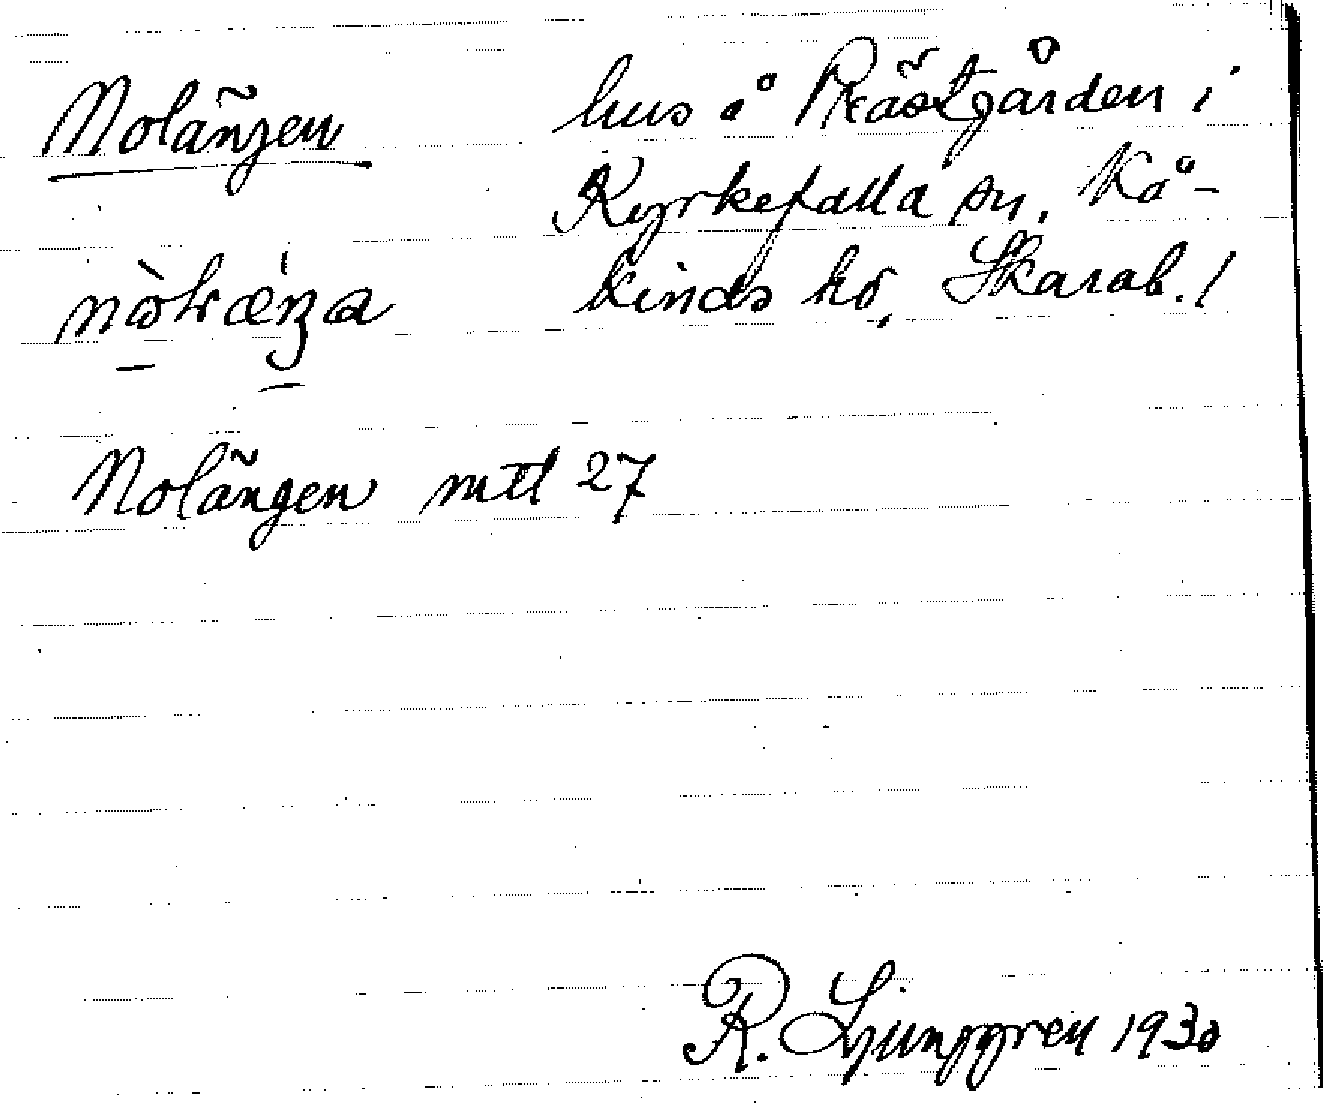 Nolängen
hus å Prästgården i
Kyrkefalla sn, Kå-
kinds hd, Skarab. l
Nolängen mtl 27
R. Ljunggren 1930